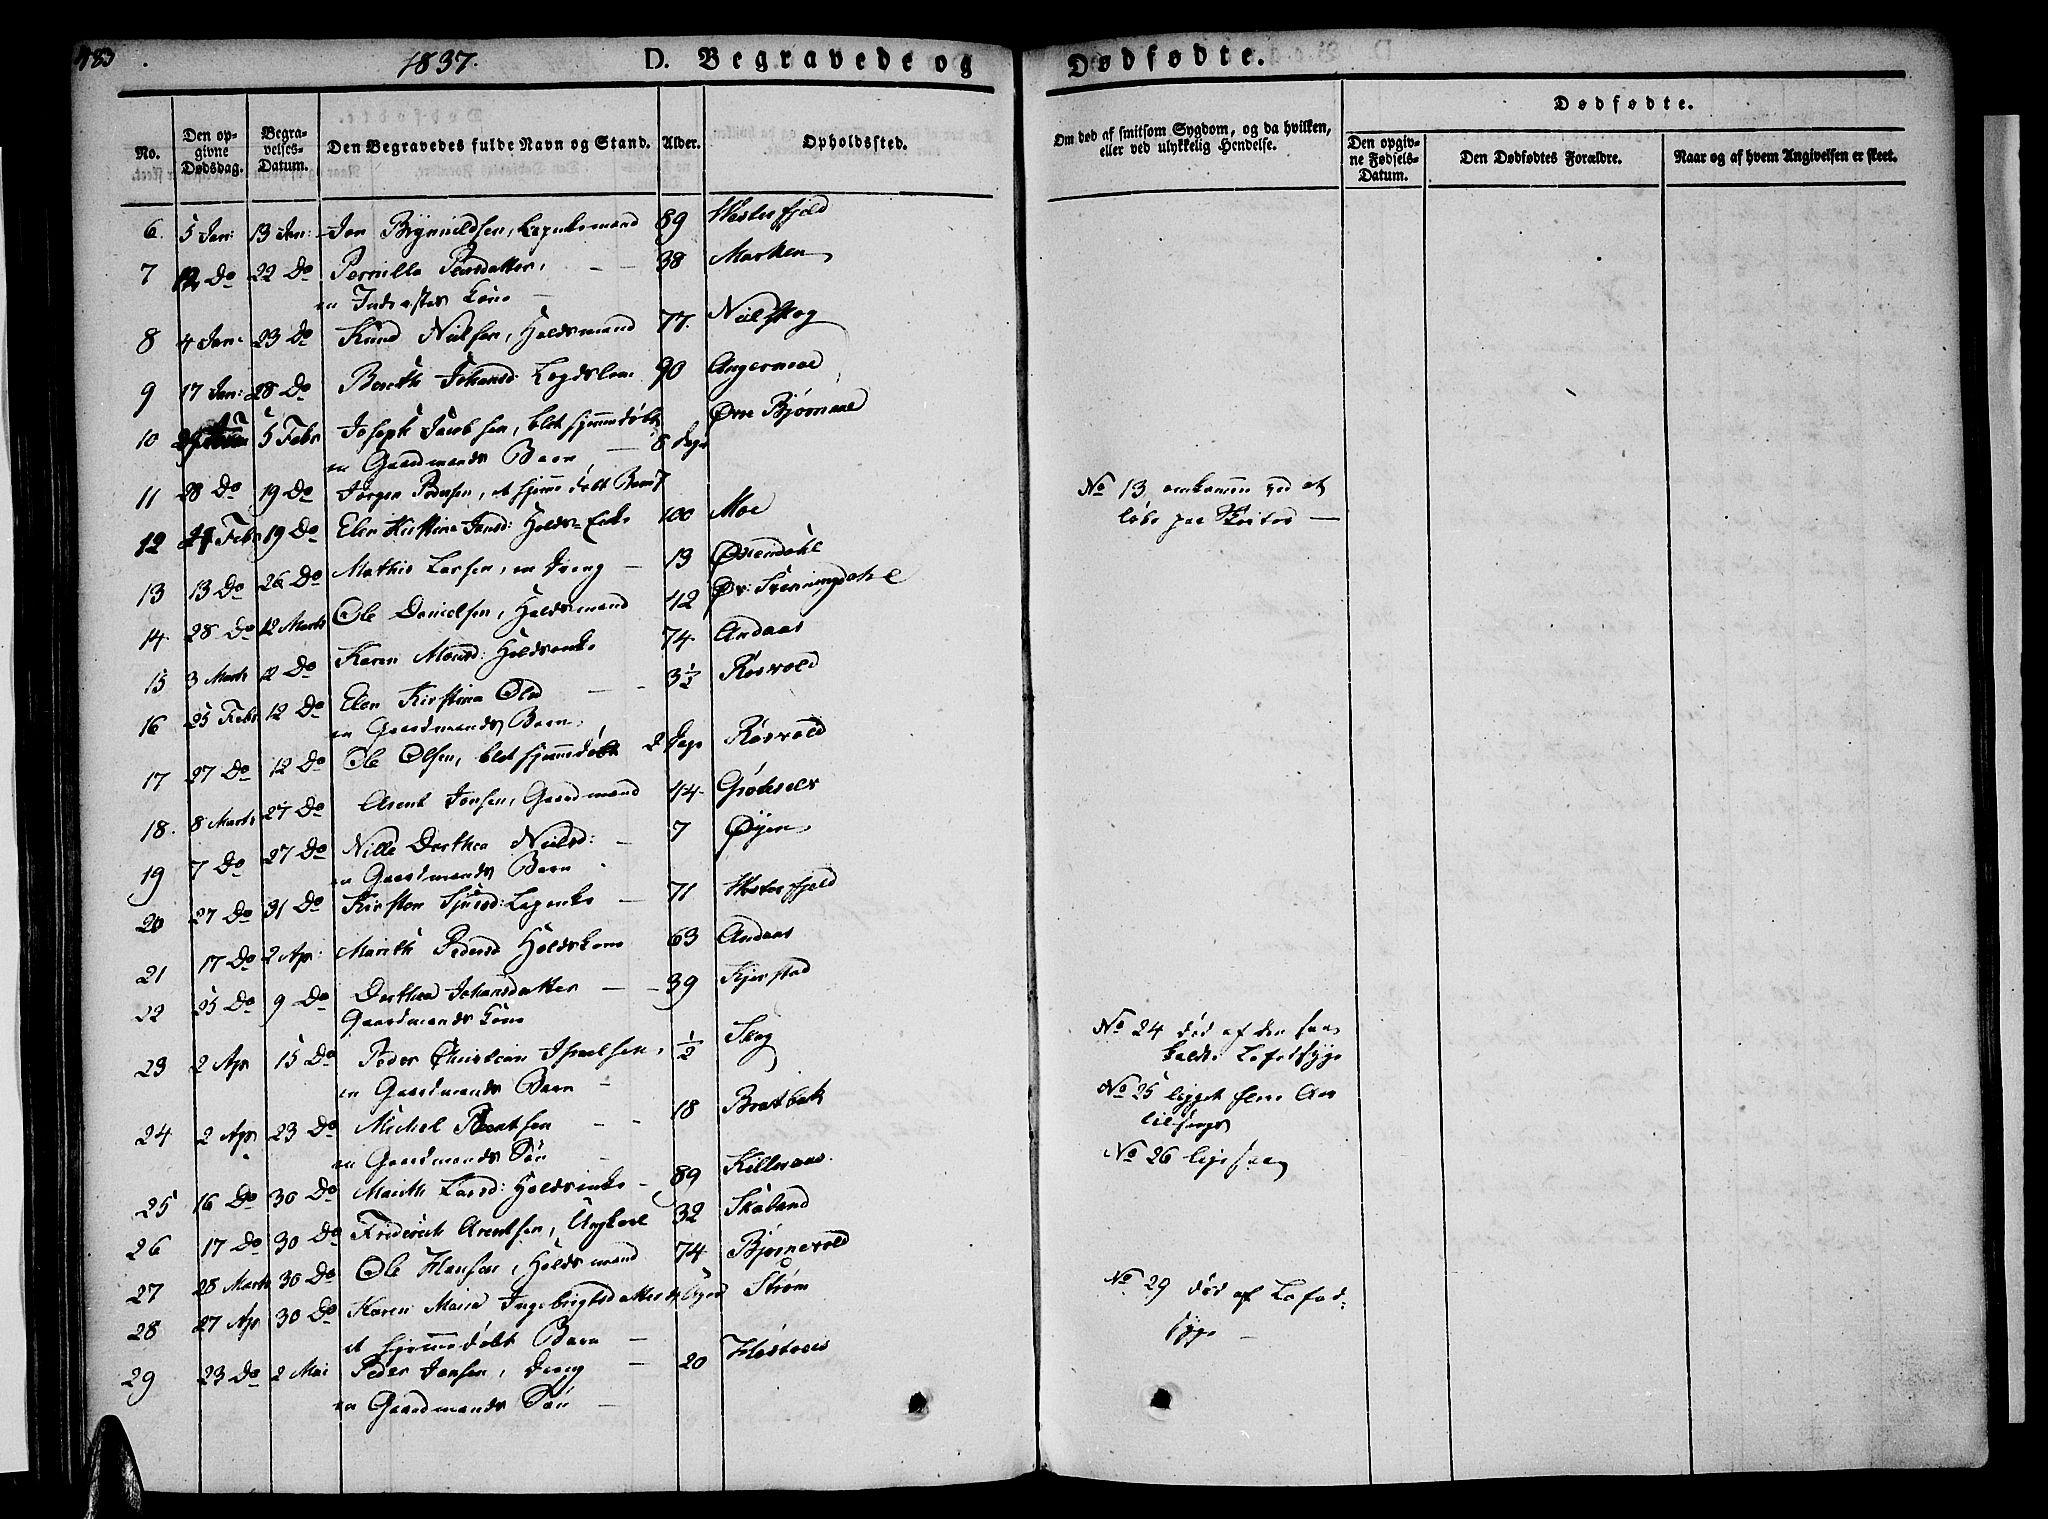 1837.
D. Begravede og
Dødfødte.
No.
Den opgivne Dødsdag.
Begravelses-Datum.
Den Begravedes fulde Navn og Stand.
Alder.
Opholdssted.
Om død af smitsom Sygdom, og da hvilken, eller ved ulykkelig Hendelse.
Dødfødte.
Den opgivne Fødsels-Datum.
Den Dødfødtes Forældre.
Naar og af hvem Angivelsen er skeet.
6. 5 Jan: 13 Jan: Jon Brynnildsen, 89 Westerfjeld
7 12 Do 22 Do Pernille Pedersdatter, 38 Marken
en Inderstes Kone
8 4 Jan: 23 Do Knud Nielsen, Holdsmand 77. Nielskog
9 17 Jan: 28 Do Bereth Johansd: Legdslem 90 Angermoe
10 5 Febr Joseph Jacobsen, blot hjemmedøbt 8 Dage Øvre Bjørnaae
en Gaardmands Barn
11 28 Do 19 Do Jørgen Pedersen, et hjemmedøbt Barn
12 Febr 19 Do Elen Kirstina Jansd: Holds-Enke 100 Moe
13 13 Do 26 Do Mathis Larsen, en Dreng 13
14 28 Do 12 Marts Ole Danielsen, Holdsmand 42
15 3 Marts 12 Do Karen Monsd: Holdsenke 74. Andaas
16 25 Febr 12 Do Elen Kirstina Olsd 3 1/2 Røsvold
en Gaardmands Barn
17 27 Do 12 Do Ole Olsen, blot hjemmedøbt 2 Dage Røsvold
18. 8 Marts 27 Do Arent Jonsen, Gaardmand 44.
19 7 Do 27 Do Nille Dorthea Nielsd: 7 Øyen
en Gaardmands Barn
20 27 Do 31 Do Kirsten 71 Westerfjeld
21 17 Do 2 Apr: Marith Pedersd Holdskone 63 Andaas
22 25 Do 9 Do Dorthea Johansdatter 39 Kjerstad
Gaardmands Kone
23 2 Apr 15 Do Peder Christian Israelsen, 1/2 Skog
en Gaardmands Barn
24 2 Apr 23 Do Michel Bentsen 18 Bratbak
en Gaardmands Søn
25 16 Do 30 Do Marith Larsd: Holdsenke 89
26 17 Do 30 Do Friderich Arentsen, Ungkarl 32 Skaland
27 28 Marts 30 Do Ole Hansen, Holdsmand 74 Bjørnevold
28 27 Apr 30 Do Karen Maria Ingebrigtsdatter Strøm
et hjemmedøbt Barn
29 23 Do 2 Mai Peder Jansen, Dreng 20
en Gaardmands Søn
No 13 omkommen ved at
løbe paa
No 24 død af den saa
kaldte Lofodsyge
No 25 ligget flere Aar
til sengs
No 26 ligesaa
No 29 død af Lofod-
syge